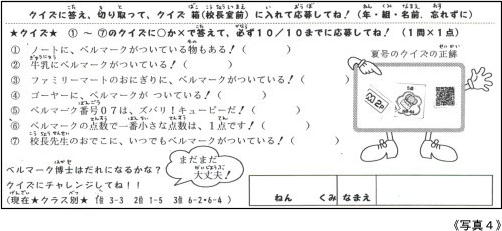 クイズに答え、切り取って、クイズ箱(校長室前)に入れて応募してね!(年・組・名前、忘れずに)
★クイズ★ ①～⑦のクイズに○か×で答えて、必ず10/10までに応募してね!(1問×1点)
① ノートに、ベルマークがついている物もある!( )
② 牛乳にベルマークがついている!( )
③ ファミリーマートのおにぎりに、ベルマークがついてる!( )
④ ゴーヤーに、ベルマークがついてる!( )
⑤ ベルマーク番号07は、ズバリ!キューピーだ!( )
⑥ ベルマークの点数で一番小さな点数は、1点です!( )
⑦ 校長先生のおでこに、いつもベルマークがついている!( )
夏号のクイズの正解
ベルマーク博士はだれになるかな?
クイズにチャレンジしてね!!
まだまだ
大丈夫!
(現在★クラス別★ 1位 3-3 2位 1-5 3位 6-2・6-4)
ねん くみ なまえ
《写真4》